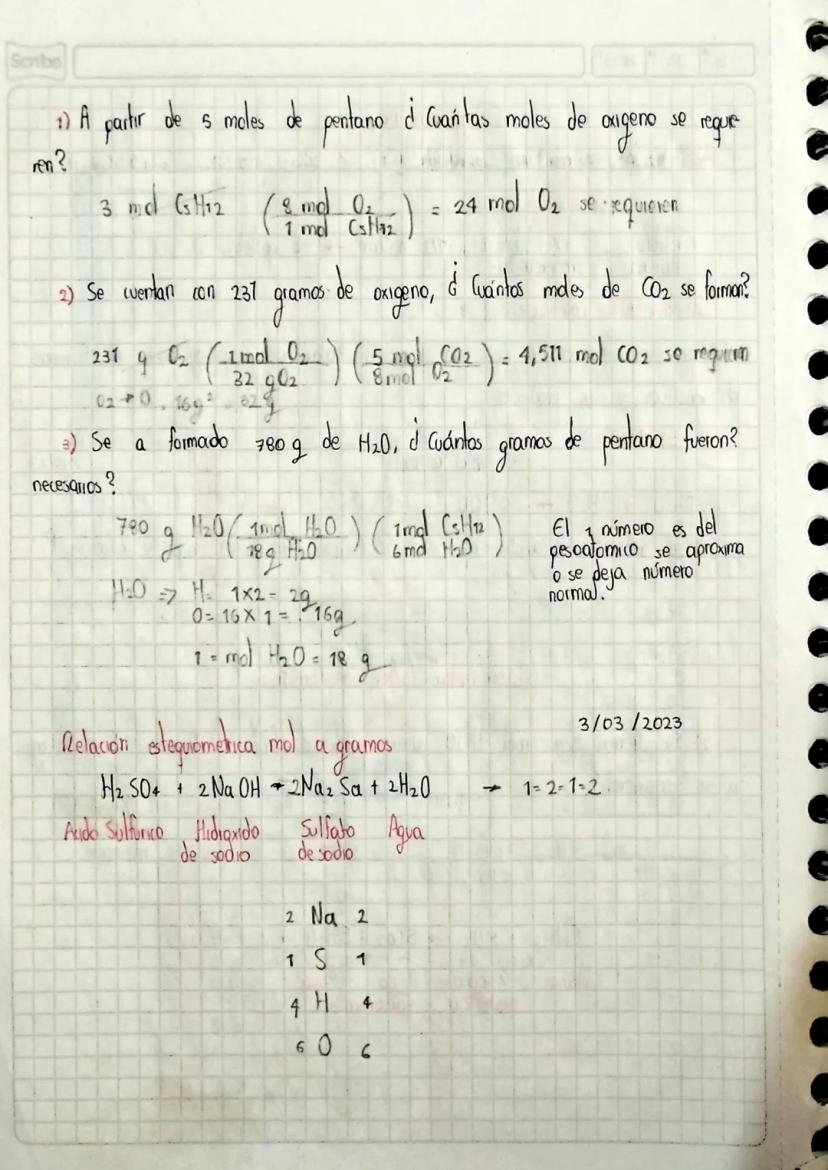 Scribe
1) A partir de 5 moles de pentano ¿ Cuántas moles de oxigeno se reque
ren?
3 mol C5H12 ( 8 mol O2 / 1 mol C5H12 ) = 24 mol O2 se requieren
2) Se cuentan con 231 gramos de oxigeno, ¿ Cuántos moles de CO2 se forman?
231 g O2 ( 1 mol O2 / 32 gO2 ) ( 5 mol CO2 / 8 mol O2 ) = 4,511 mol CO2 se
O2 → O . 16g² = 32g
3) Se a formado 780 g de H2O, ¿ Cuántos gramos de pentano fueron?
necesarios?
780 g H2O ( 1mol H2O / 18g H2O ) ( 1mol C5H12 / 6mol H2O )
El 1 número es del
pesoatomico se aproxima
o se deja número
normal.
H2O => H= 1x2 = 2g
O= 16 x 1 = 16g
1 = mol H2O = 18 g
3/03/2023
Relación estequiometrica mol a gramos
H2 SO4 + 2 Na OH → 2Na2 Sa + 2H2O → 1=2=1=2
Acido Sulfúrico Hidroxido Sulfato Agua
de sodio de sodio
2 Na 2
1 S 1
4 H 4
6 O 6